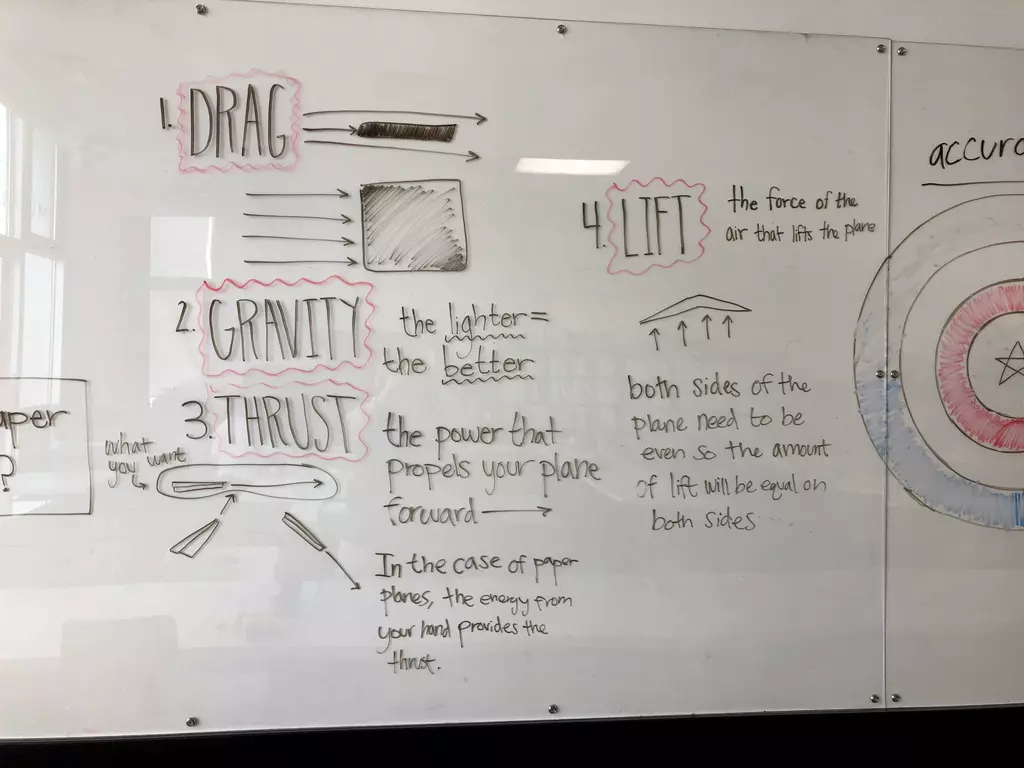 1. DRAG
2. GRAVITY
the lighter =
the better
3. THRUST
the power that
propels your plane
forward
what
you want
In the case of paper
planes, the energy from
your hand provides the
thrust.
4. LIFT
the force of the
air that lifts the plane
both sides of the
plane need to be
even so the amount
of lift will be equal on
both sides
aper
?
accurc